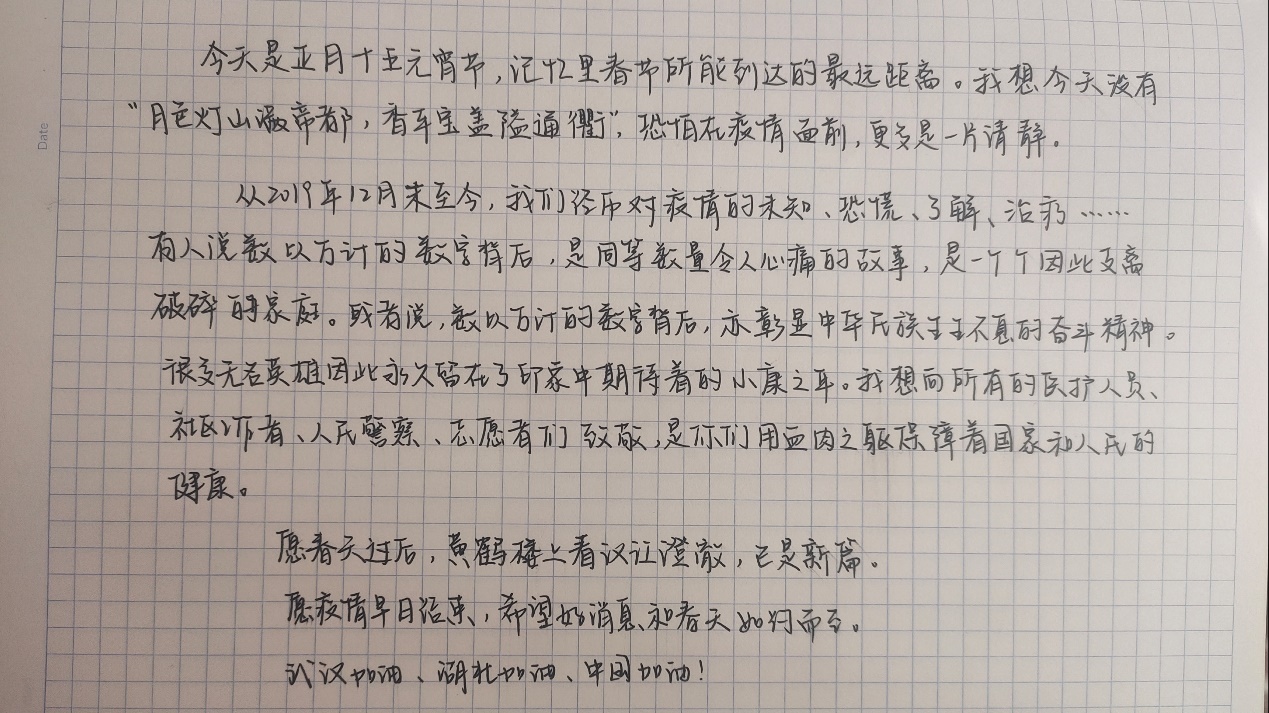 Date
今天是正月十五元宵节，记忆里春节所能到达的最远距离。我想今天没有
“月色灯山满帝都，香车宝盖隘通衢”，恐怕在疫情面前，更多是一片清静。
从2019年12月末至今，我们经历对疫情的未知、恐慌、了解、治疗……
有人说数以万计的数字背后，是同等数量令人心痛的故事，是一个个因此支离
破碎的家庭。或者说，数以万计的数字背后，亦彰显中华民族生生不息的奋斗精神。
很多无名英雄因此永久留在了印象中期待着的小康之年。我想向所有的医护人员、
社区工作者、人民警察、志愿者们致敬，是你们用血肉之躯保障着国家和人民的
健康。
愿春天过后，黄鹤楼上看汉江澄澈，已是新篇。
愿疫情早日结束，希望好消息和春天如约而至。
武汉加油、湖北加油、中国加油！